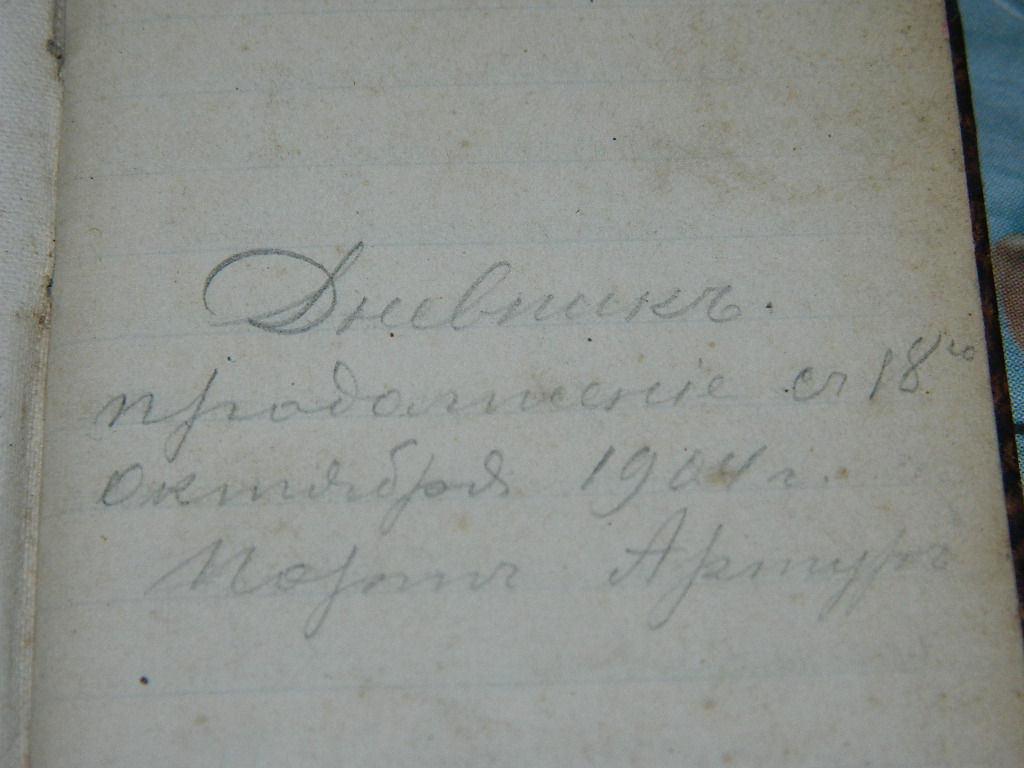 Дневникъ.
продолжение съ 18го
Октября 1904 г.
Портъ Артуръ